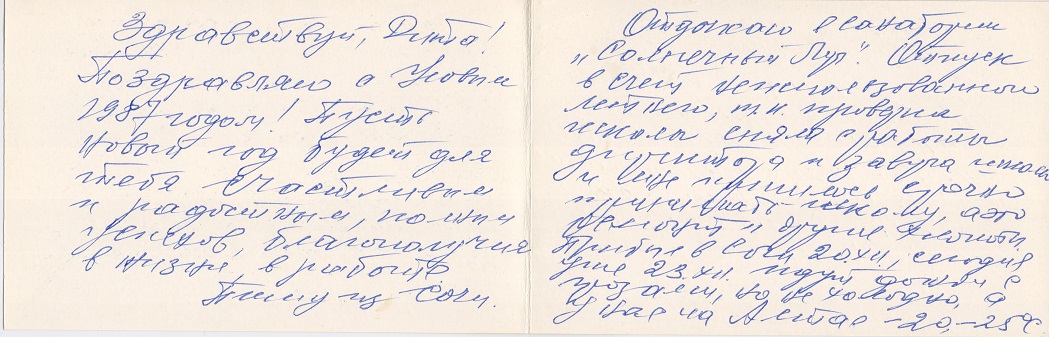 Здравствуй, Дита!
Поздравляю с Новым
1987 годом! Пусть
Новый год будет для
тебя счастливым
и радостным, полным
успехов, благополучия
в жизни, в работе
Пишу из Сочи.
Отдыхаю в санатории
"Солнечный Луч". Отпуск
в счет неиспользованного
летнего, т.к. проверка
школы сняла с работы
директора и завуча школы
и мне пришлось срочно
принимать школу, а это
ремонт и другие хлопоты
Прибыл в Сочи 20.XII, сегодня
уже 23.XII. идут дожди с
грозами, но не холодно, а
у нас на Алтае -20,-25°C